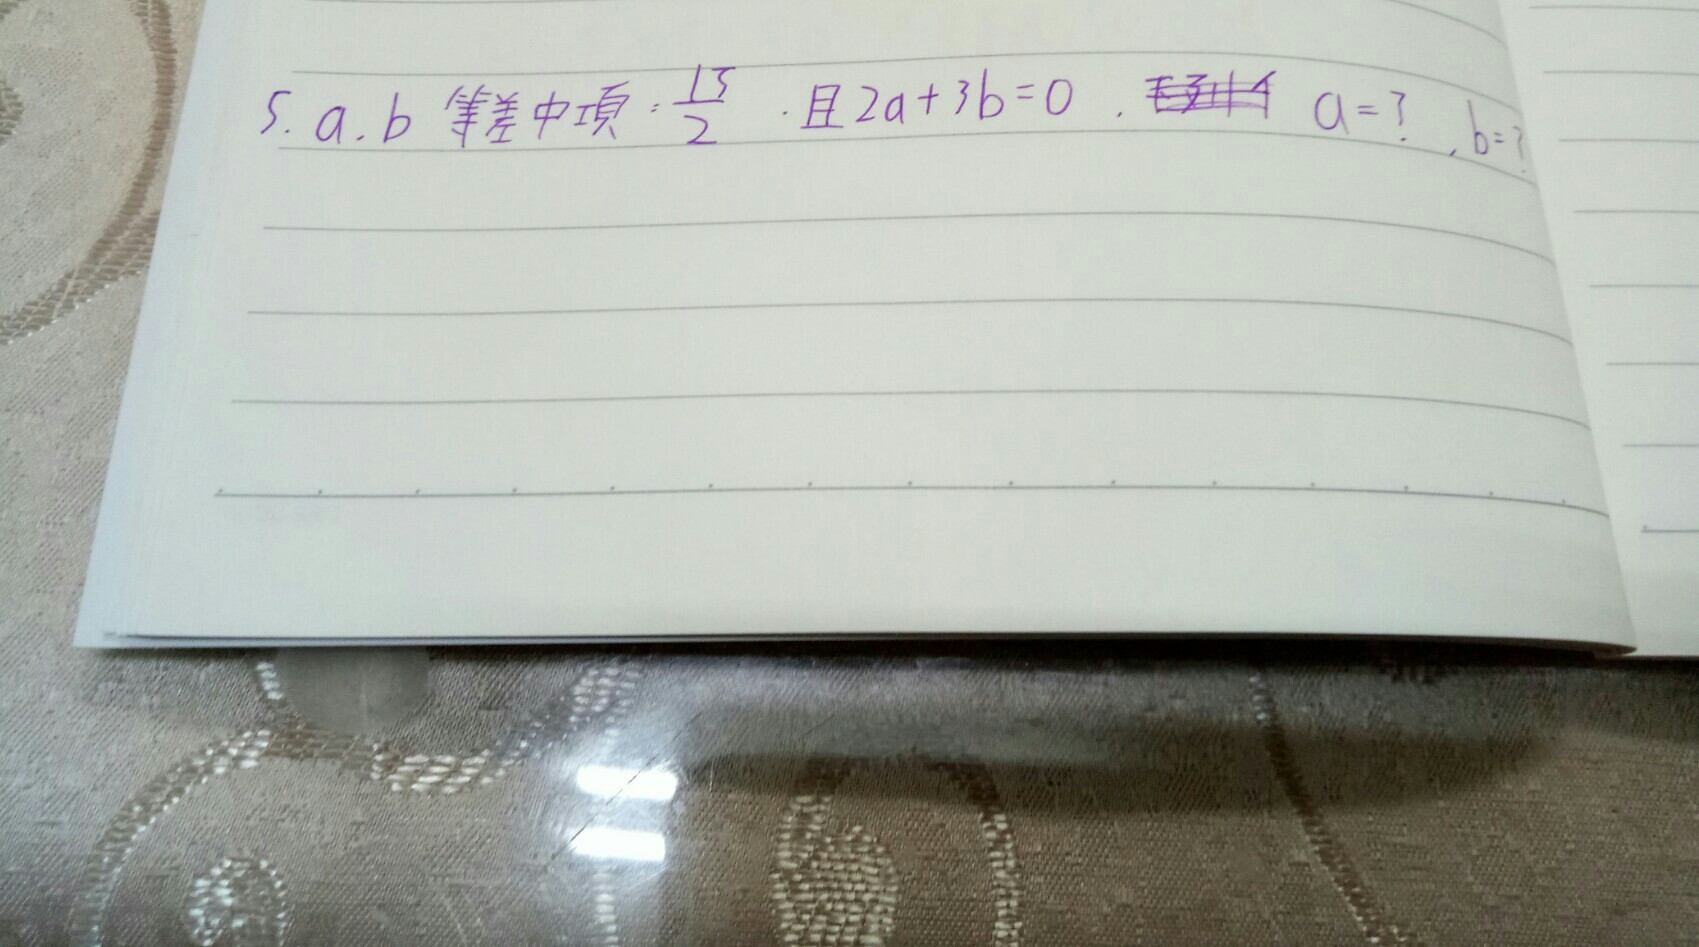 5. a.b 等差中項 : 15/2 . 且 2a+3b=0 . a=? , b=?